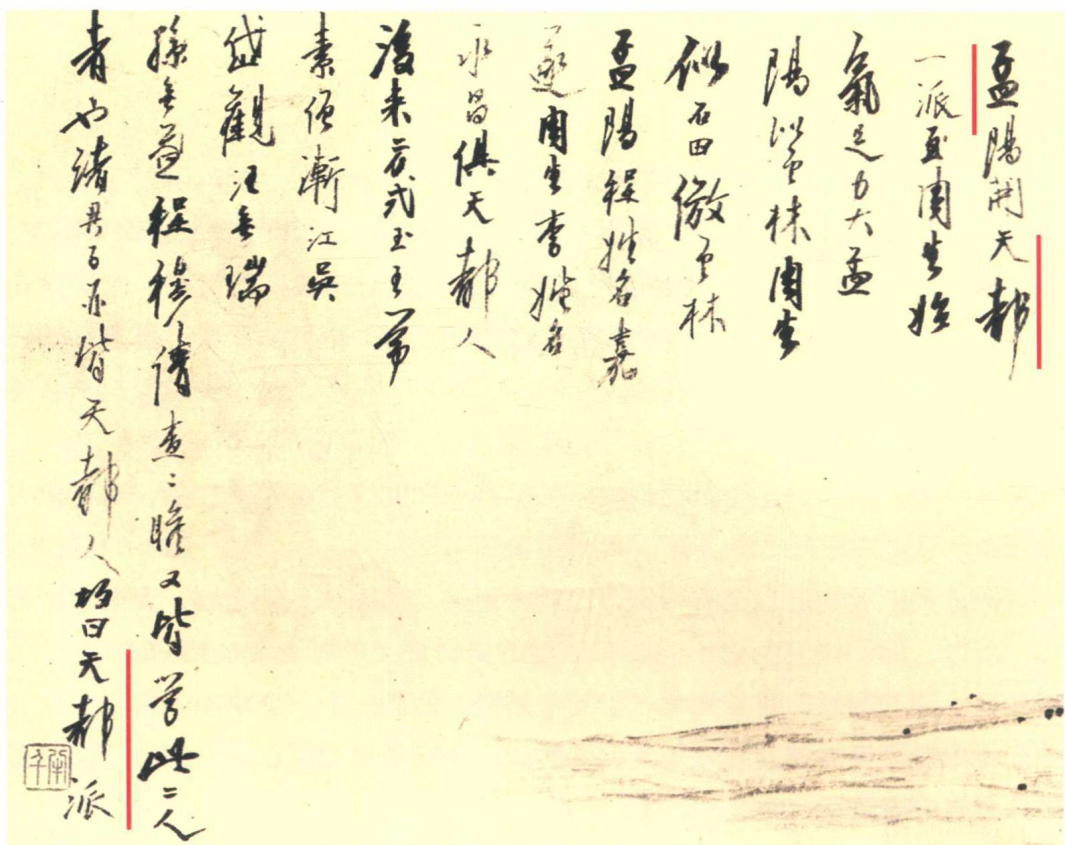 孟陽開天都
一派至周生始
氣足力大孟
陽似雲林周生
似石田倣雲林
孟陽程姓名嘉
燧周生李姓名
永昌俱天都人
後來方式玉王尊
素僧漸江吳
岱觀汪無瑞
孫無益程穆倩查二瞻又皆學此二人
者也諸君子亦皆天都人故曰天都派
半千